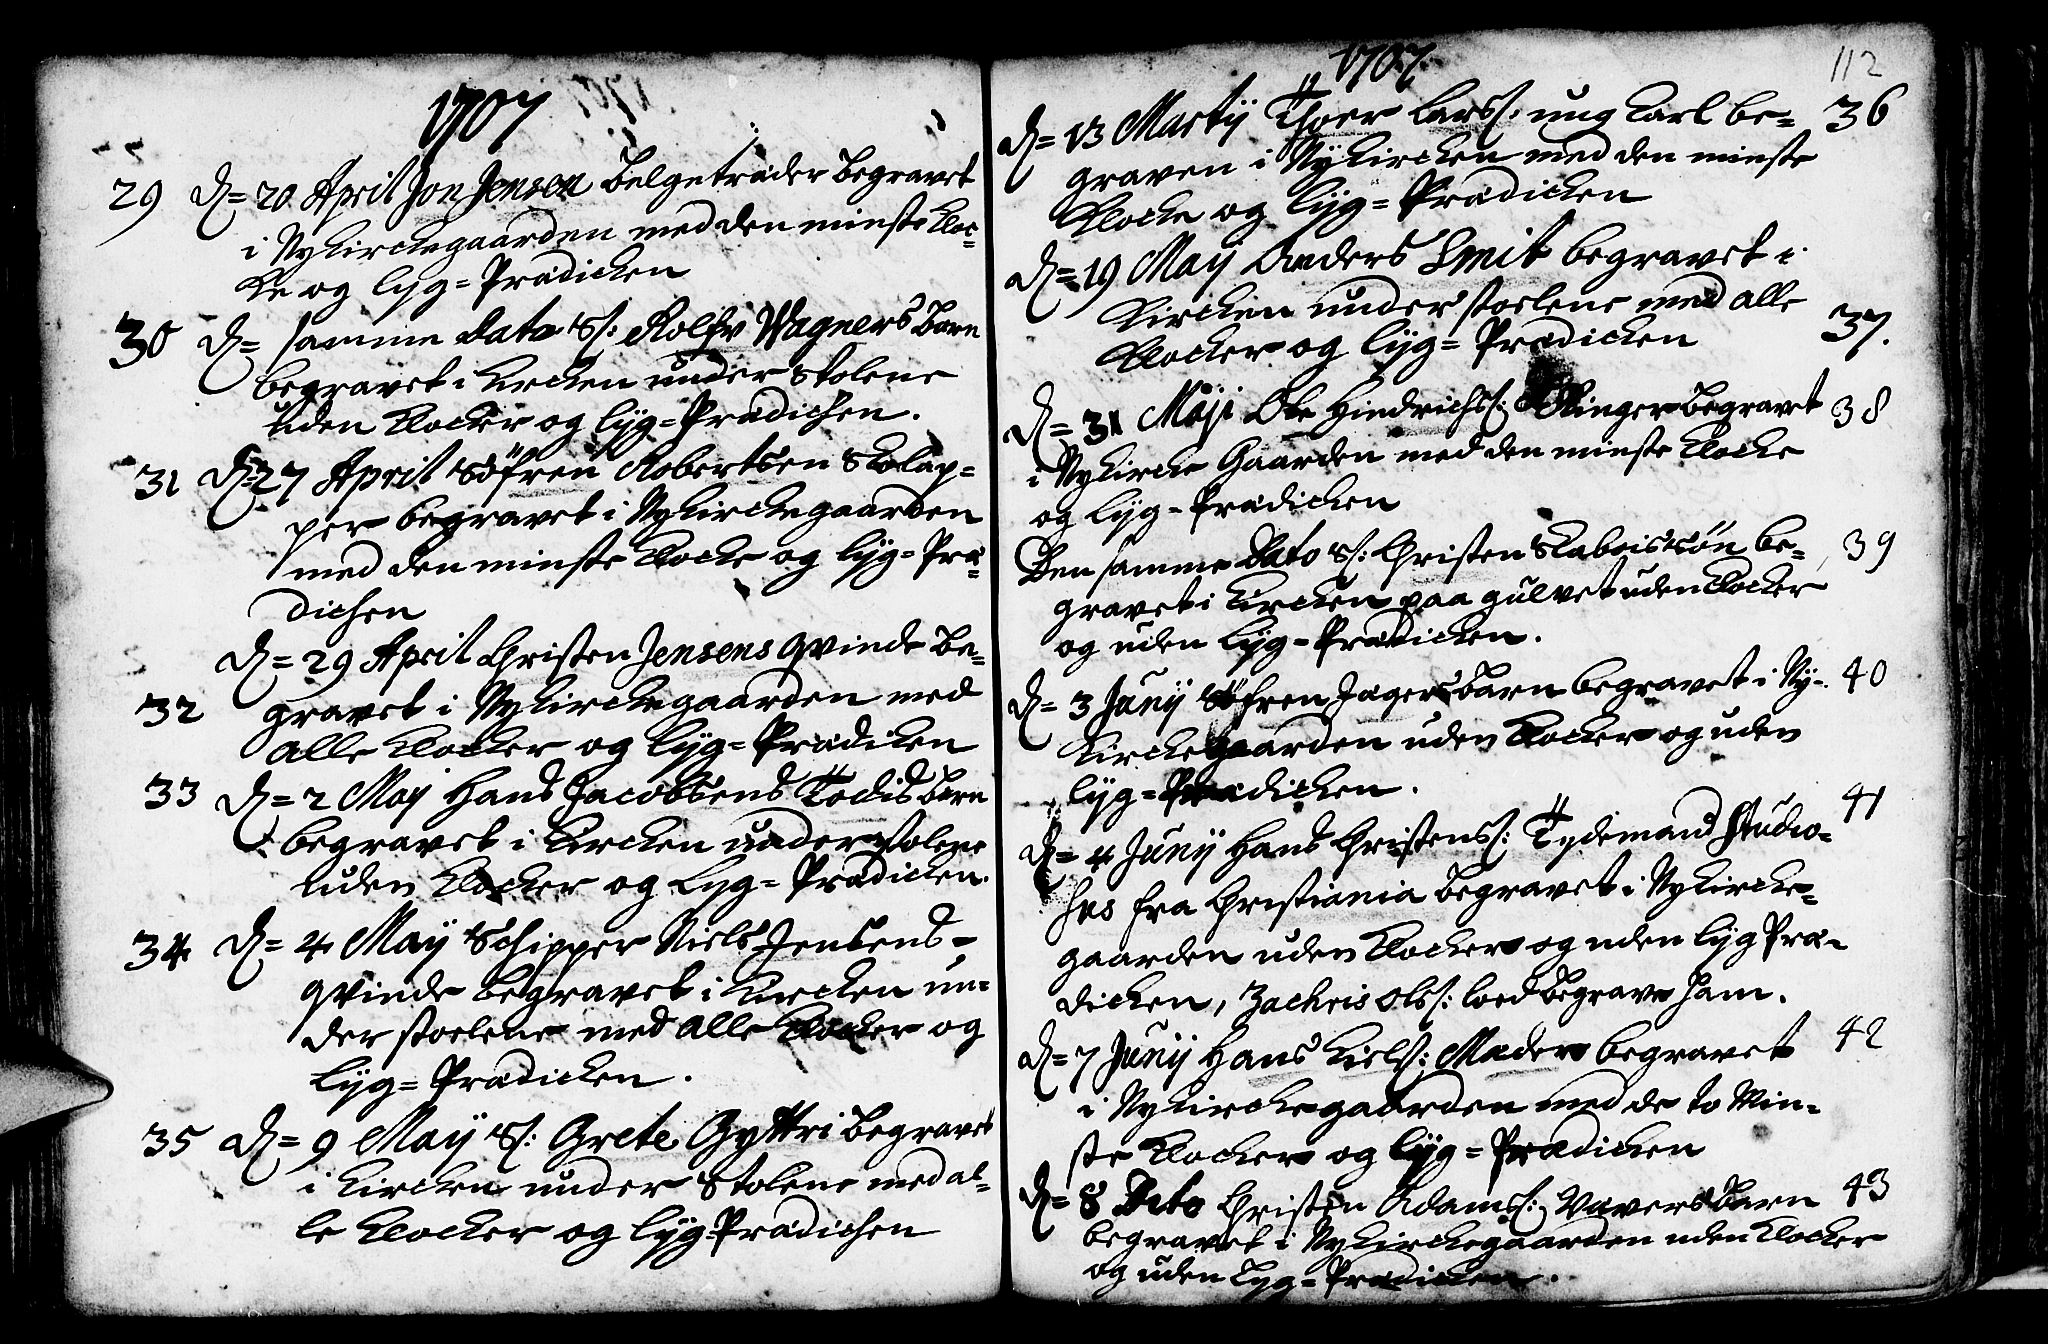 1707
29 D= 20 April Jon Jensen Belgetræder begravet
i Nykirckegaarden med den minste Kloc=
ke og Lyg=Prædicken
30 D= samme Dato S: Rolf Wagners Barn
begravet i Kircken under Stolene
uden Klocker og Lyg=Prædichen.
31 D= 27 April Söfren Robertsen Skolap=
per begravet i Nykirckegaarden
med den minste Klocke og Lyg=Præ=
dichen
D= 29 April Christen Jensens Qvinde be=
32 gravet i Nykirckegaarden med
alle Klocker og Lyg=Prædicken
33 D= 2 Maij Hans Jacobsens Barn
begravet i Kircken under Stolene
uden Klocker og Lyg=Prædicken.
34 D= 4 Maÿ Schipper Niels Jensens=
Qvinde begravet i Kircken un=
der stoelene med alle Klocker og
Lÿg=Prædicken.
35 D= 9 Maÿ S: Grete Gyttri begravet
i Kircken under Stolene med al=
le Klocker og Lÿg=Prædichen
1707. 112
D= 13 Martÿ Thoer Larss: ung Karl be= 36
graven i Nÿkircken med den minste
Klocke og Lÿg=Prædicken
D= 19 Maÿ Anders Smit begravet i
Kircken under stoelene med alle
Klocker og Lÿg=Prædicken 37.
D= 31 Maji Ole Hindrichss: Ringer begravet 38
i Nykircke Gaarden med den minste Klocke
og Lÿg=Prædicken
Den samme Dato S: Christen Skabois Sön be= 39
gravet i Kircken paa gulvet uden Klocker
og uden Lÿg=Prædicken.
D= 3 Junÿ Söfren Jagers Barn begravet i Ny= 40
kirckegaarden uden Klocker og uden
Lÿg=Prædicken.
D= 4 Junÿ Hans Christenss: Tydemand Studio= 41
sus fra Christiania begravet i Nykircke=
gaarden uden Klocker og uden Lÿg Præ=
dicken, Zachris Olss: loed begrave ham.
D= 7 Junÿ Hans Kielss: Mader begravet 42
i Nykirckegaarden med de to Min=
ste Klocker og Lÿg=Prædicken
D= 8 Dito Christen Adamss: Vævers Barn 43
begravet i Nykirckegaarden uden Klocker
og uden Lyg=Prædicken.